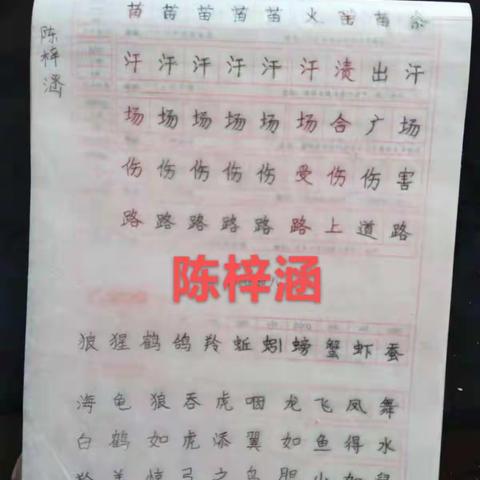 陈梓涵
苗苗苗苗苗火苗苗
汗汗汗汗汗汗渍出汗
场场场场场场合广场
伤伤伤伤伤受伤伤害
路路路路路路上道路
陈梓涵
狼猩鹤鸽羚蚯蚓螃蟹虾蚕
海龟狼吞虎咽龙飞凤舞
白鹤如虎添翼如鱼得水
羚羊惊弓之鸟胆小如鼠